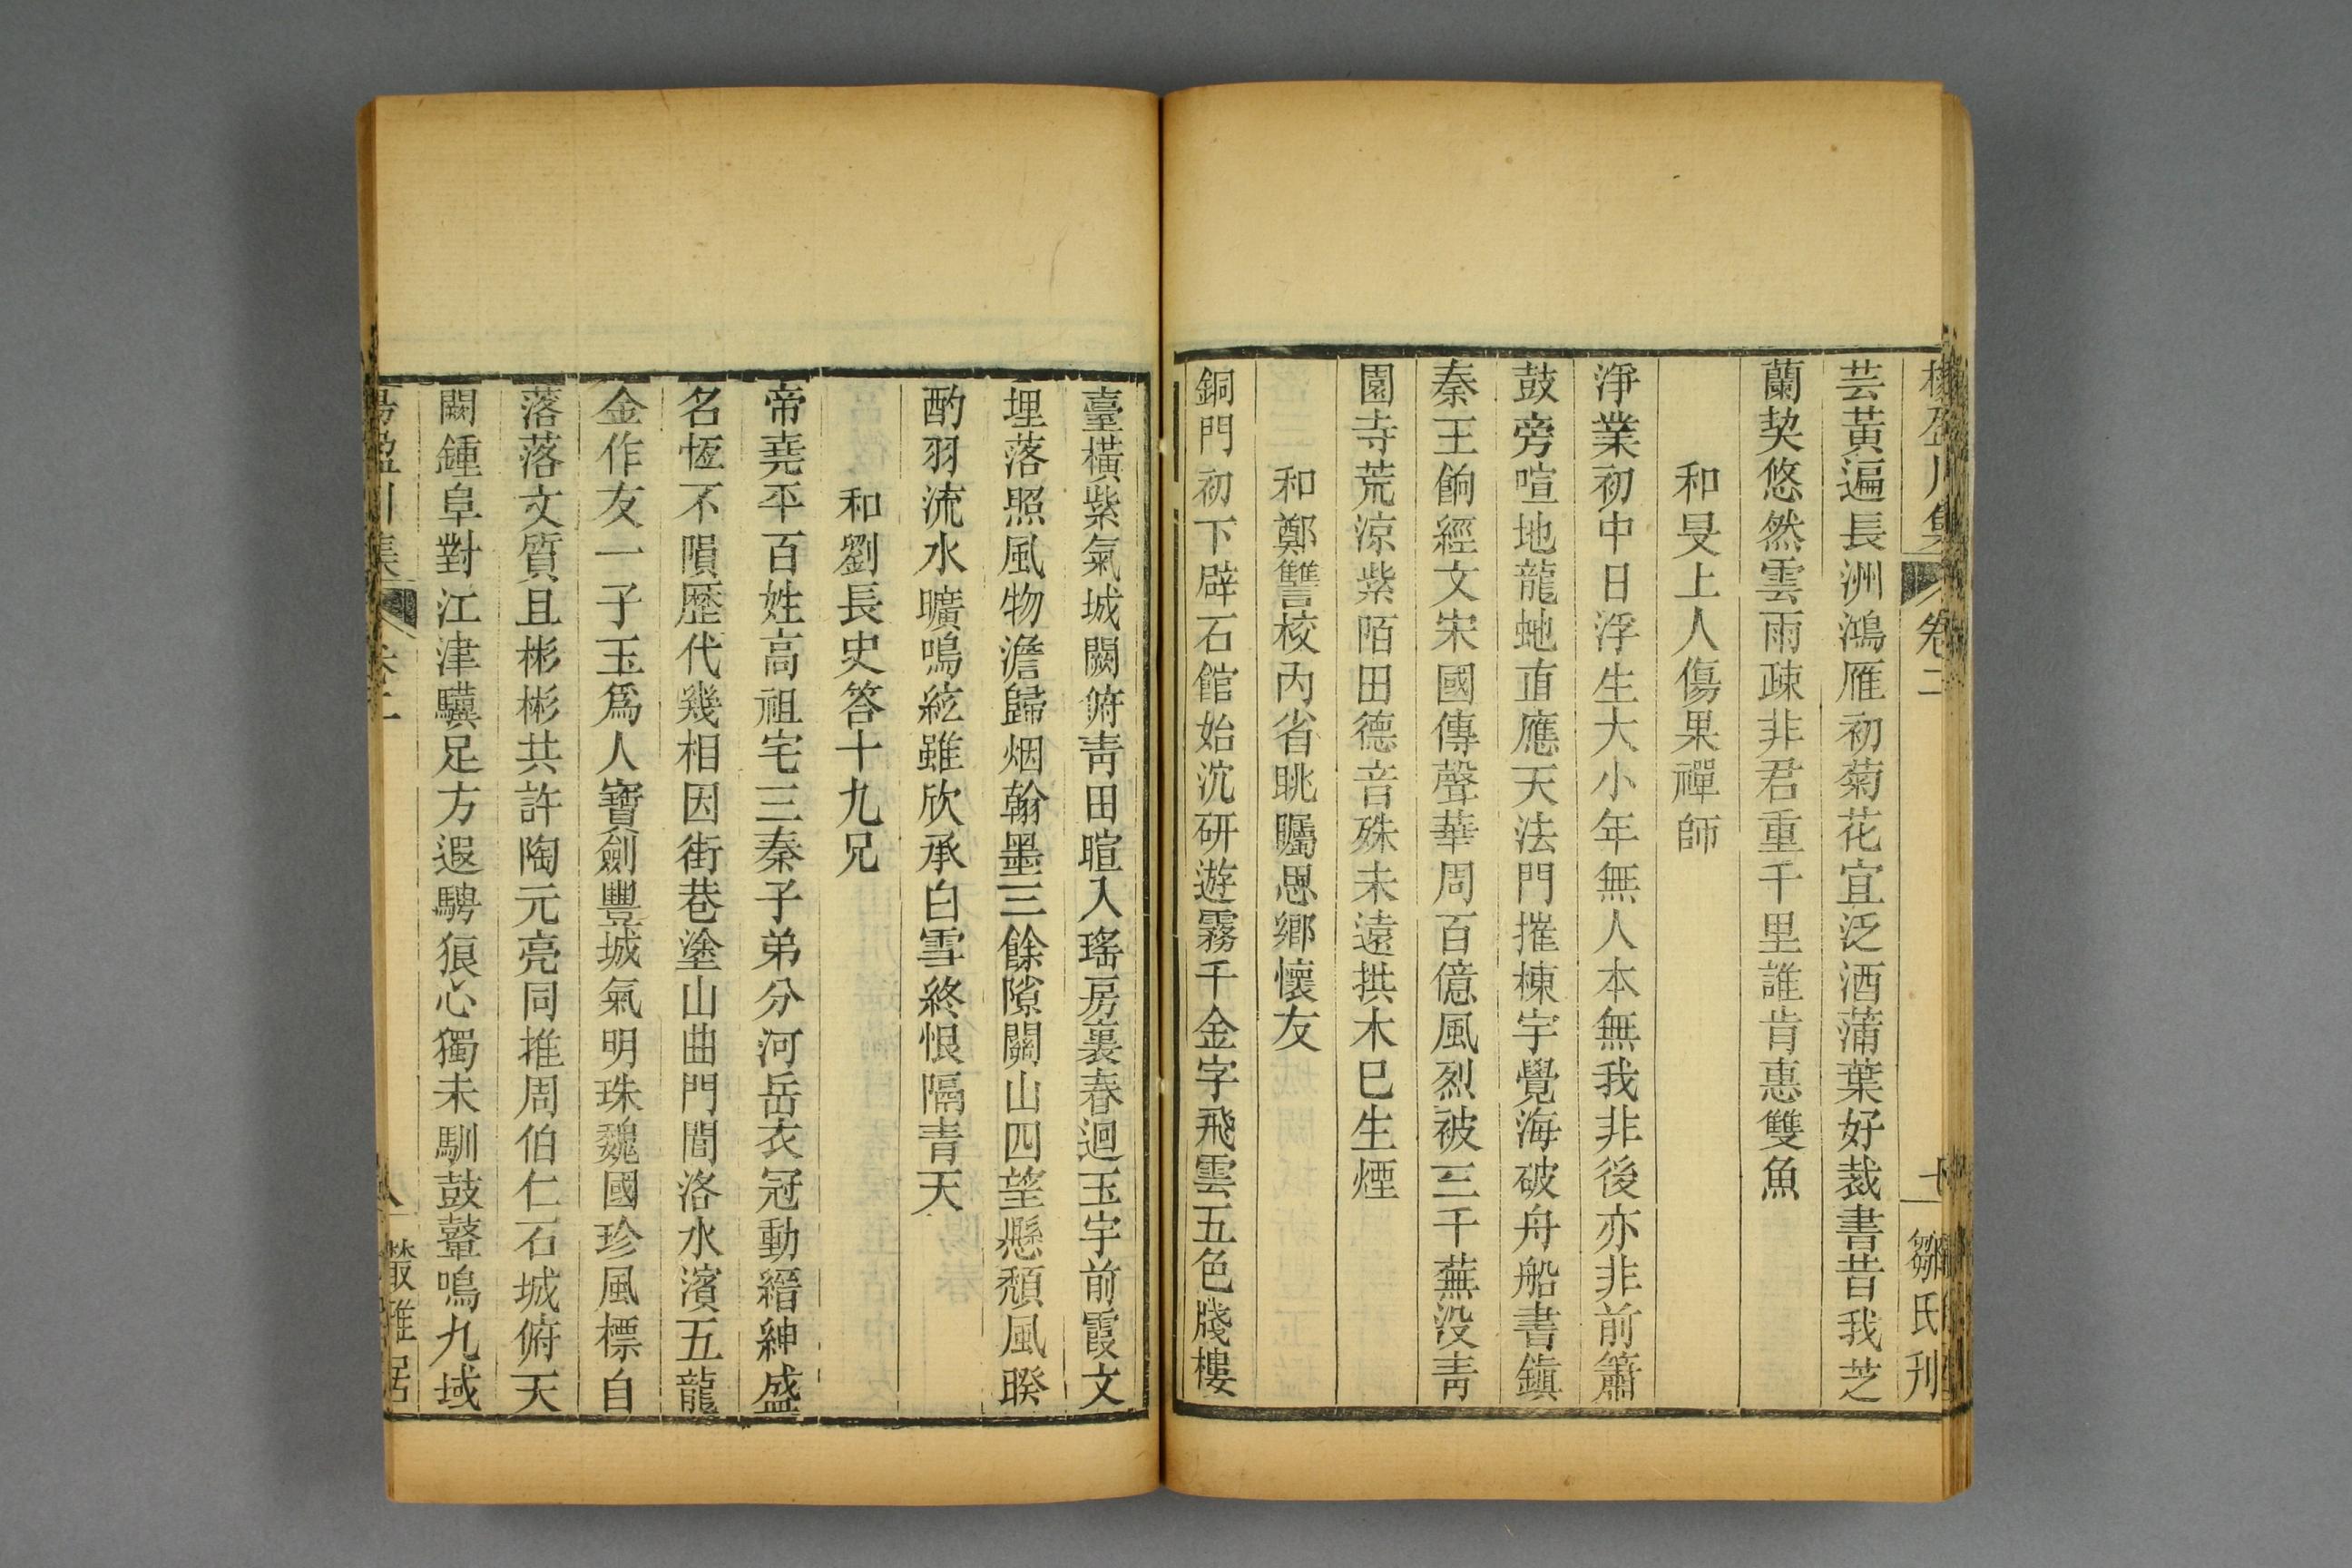 楊盈川集 卷二 十 鄒氏刊
芸黃遍長洲鴻雁初菊花宜泛酒蒲葉好裁書昔我芝
蘭契悠然雲雨疎非君重千里誰肯惠雙魚
和旻上人傷果禪師
淨業初中日浮生大小年無人本無我非後亦非前簫
鼓旁喧地龍虵直應天法門摧棟宇覺海破舟船書鎮
秦王餉經文宋國傳聲華周百億風烈被三千蕪没靑
園寺荒涼紫陌田德音殊未遠拱木已生煙
和鄭讐校内省眺矚思鄉懷友
銅門初下辟石館始沉研遊霧千金字飛雲五色牋樓
臺橫紫氣城闕俯靑田暄入瑤房裏春迴玉宇前霞文
埋落照風物澹歸烟翰墨三餘隙關山四望懸頹風睽
酌羽流水曠鳴絃雖欣承白雪終恨隔青天
和劉長史答十九兄
帝堯平百姓高祖宅三秦子弟分河岳衣冠動縉紳盛
名恆不隕歷代幾相因街巷塗山曲門閭洛水濱五龍
金作友一子玉爲人寶劍豐城氣明珠魏國珍風標自
落落文質且彬彬共許陶元亮同推周伯仁石城俯天
闕鍾阜對江津驥足方遐騁狼心獨未馴鼓鼙鳴九域
楊盈川集 卷二 叢雅居